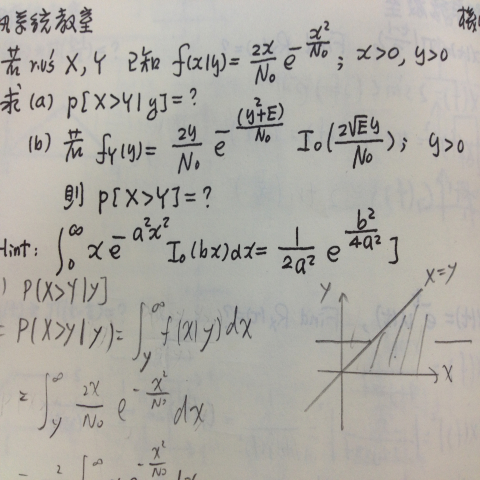 系統教室
若 r.v.'s X, Y 已知 f(x|y) = 2x/N₀ e^(-x²/N₀) ; x>0, y>0
求 (a) p[X>Y|y] = ?
(b) 若 f_Y(y) = 2y/N₀ e^(-(y²+E)/N₀) I₀(2√E y/N₀) ; y>0
則 p[X>Y] = ?
Hint: ∫₀^∞ x e^(-a²x²) I₀(bx) dx = 1/(2a²) e^(b²/(4a²)) ]
) P(X>Y|y]
= P(X>Y|y) = ∫_y^∞ f(x|y) dx
= ∫_y^∞ 2x/N₀ e^(-x²/N₀) dx
Y
X=Y
X